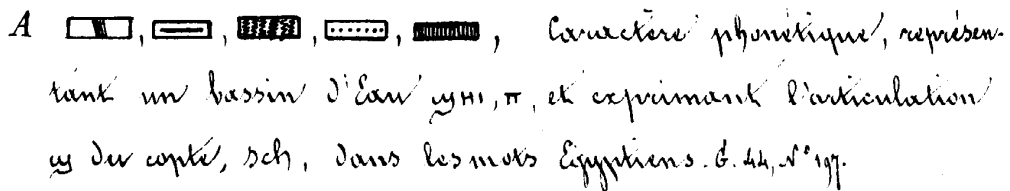 A , , , , , Caractère phonétique, représen-
tant un bassin d'Eau ϣⲏⲓ, π, et exprimant l'articulation
ϣ du copte, sch, dans les mots Egyptiens. G. 44, N° 197.